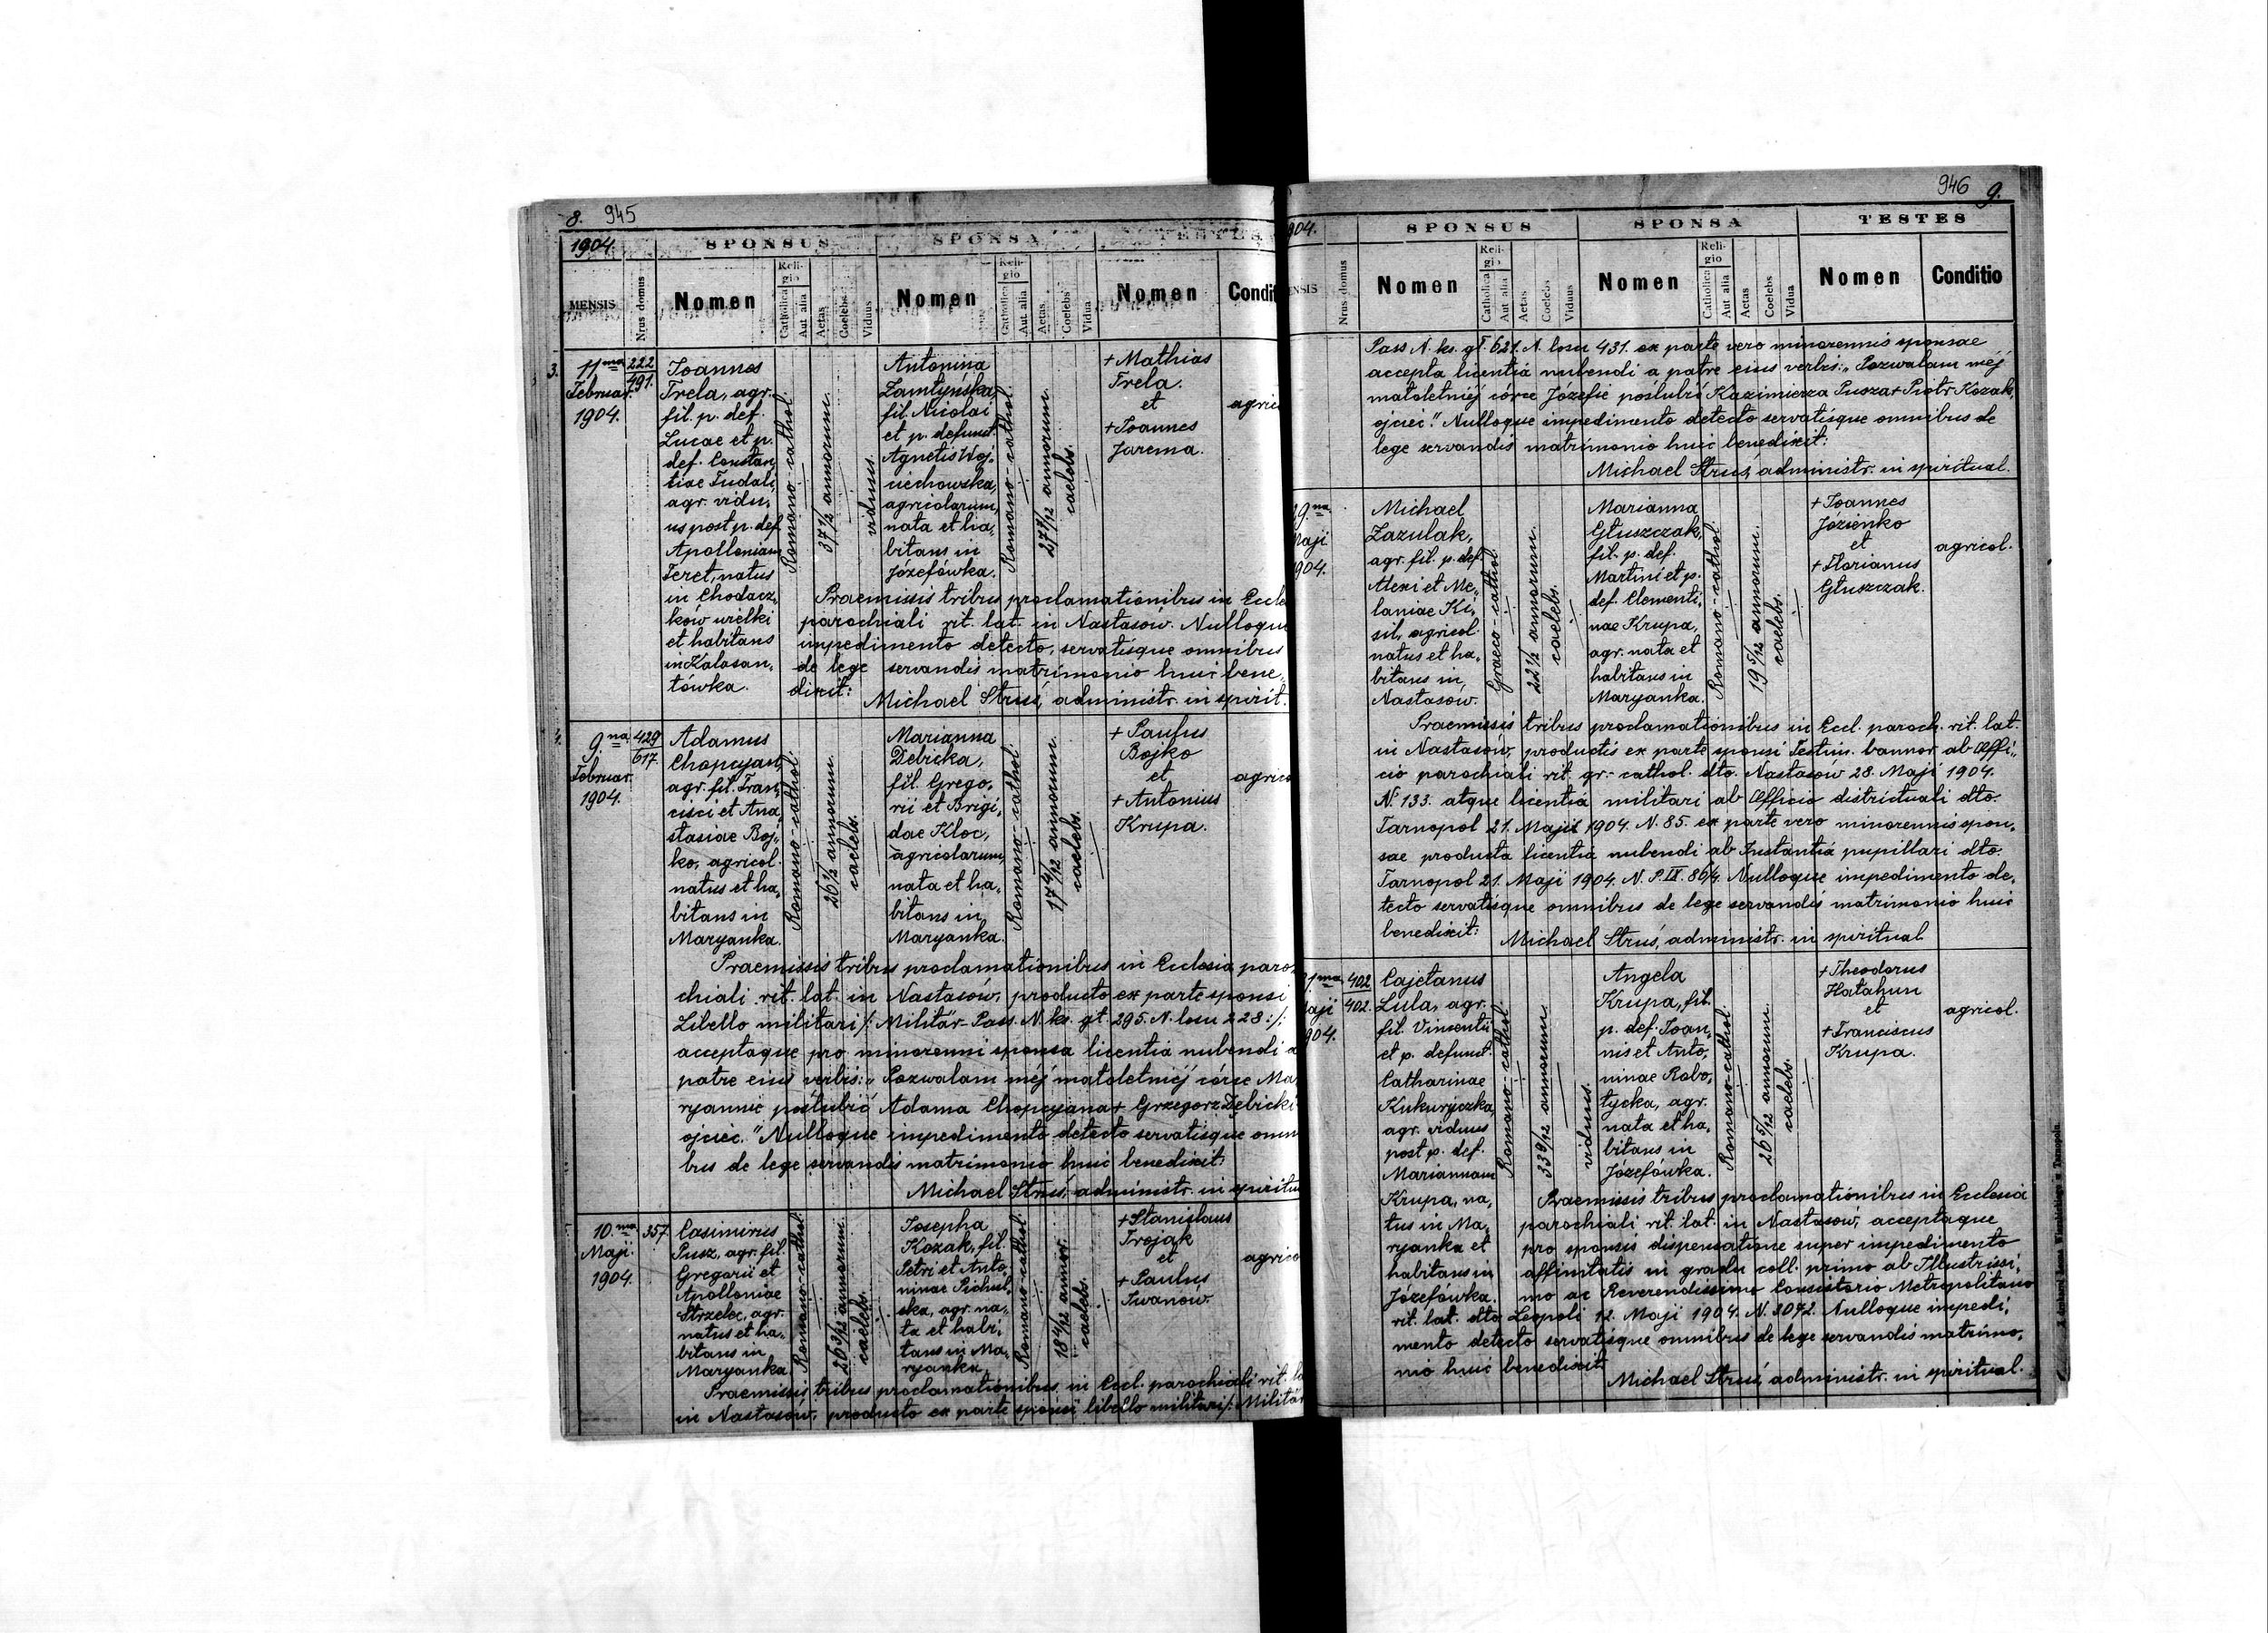 8. 945
1904.
SPONSUS
SPONSA
TESTES
MENSIS
Nrus domus
Nomen
Religio
Catholica
Aut alia
Aetas
Coelebs
Viduus
Nomen
Religio
Catholica
Aut alia
Aetas
Coelebs
Vidua
Nomen
Condit
3.
11ma
Februar.
1904.
222
491.
Joannes
Trela, agr.
fil. p. def.
Lucae et p.
def. Constan„
tiae Tudali,
agr. vidu„
us post p. def.
Apolloniam
Feret, natus
in Chodacz„
ków wielki
et habitans
in Kalasan„
tówka.
Romano-cathol.
37 1/2 annorum.
viduus.
Antonina
Zamłyńska,
fil. Nicolai
et p. defunct.
Agnetis Woj„
ciechowska,
agricolarum,
nata et ha„
bitans in
Józefówka.
Romano-cathol.
27 1/12 annorum.
caelebs.
+ Mathias
Trela.
et
+ Joannes
Jarema.
agric
Praemissis tribus proclamationibus in Eccle
parochiali rit. lat. in Nastasów. Nulloque
impedimento detecto, servatisque omnibus
de lege servandis matrimonio huic bene„
dixit:
Michael Struś, administr. in spirit.
4.
9.na
Februar.
1904.
429
617.
Adamus
Chopcyan,
agr. fil. Fran„
cisci et Ana„
stasiae Boj„
ko, agricol.
natus et ha„
bitans in
Maryanka.
Romano-cathol.
26 1/2 annorum.
caelebs.
Marianna
Dębicka,
fil. Grego„
rii et Brigi„
dae Kloc,
agricolarum,
nata et ha„
bitans in
Maryanka.
Romano-cathol.
17 4/12 annorum.
caelebs.
+ Paulus
Bojko
et
+ Antonius
Krupa.
agrico
Praemissis tribus proclamationibus in Ecclesia paro„
chiali rit. lat. in Nastasów, producto ex parte sponsi
Libello militari /: Militär-Pass. N. ks. gł. 295. N. losu 228:/;
acceptaque pro minorenni sponsa licentia nubendi a
patre eius verbis: „Pozwalam méj małoletniéj córce Ma„
ryannie poślubić Adama Chopcyana + Grzegorz Dębicki
ojciec." Nulloque impedimento detecto servatisque omni
bus de lege servandis matrimonio huic benedixit:
Michael Struś, administr. in spiritu
10.ma
Maji.
1904.
357.
Casimirus
Pusz, agr. fil.
Gregorii et
Apolloniae
Strzelec, agr.
natus et ha„
bitans in
Maryanka.
Romano-cathol.
26 3/12 annorum.
caelebs.
Josepha
Kozak, fil.
Petri et Anto„
ninae Pichul„
ska, agr. na„
ta et habi„
tans in Ma„
ryanka.
Romano-cathol.
18 4/12 annor.
caelebs.
+ Stanislaus
Trojak
et
+ Paulus
Iwanów.
agrico
Praemissis tribus proclamationibus in Eccl. parochiali rit. la
in Nastasów, producto ex parte sponsi libello militari /: Militär
946 9.
904.
SPONSUS
SPONSA
TESTES
ENSIS
Nrus domus
Nomen
Religio
Catholica
Aut alia
Aetas
Coelebs
Viduus
Nomen
Religio
Catholica
Aut alia
Aetas
Coelebs
Vidua
Nomen
Conditio
Pass N. ks. gł. 621. N. losu 431. ex parte vero minorennis sponsae
accepta licentia nubendi a patre eius verbis: „Pozwalam méj
małoletniéj córce Józefie poślubić Kazimierza Pusza + Piotr Kozak,
ojciec." Nulloque impedimento detecto servatisque omnibus de
lege servandis matrimonio huic benedixit:
Michael Struś, administr. in spiritual.
9.na
Maji
904.
Michael
Zazulak,
agr. fil. p. def.
Alexi et Me„
laniae Ki„
sil, agricol.
natus et ha„
bitans in
Nastasów.
Graeco-cathol.
22 1/2 annorum.
caelebs.
Marianna
Głuszczak,
fil. p. def.
Martini et p.
def. Clementi„
nae Krupa,
agr. nata et
habitans in
Maryanka.
Romano-cathol.
19 5/12 annorum.
caelebs.
+ Joannes
Józienko
et
+ Florianus
Głuszczak.
agricol.
Praemissis tribus proclamationibus in Eccl. paroch. rit. lat.
in Nastasów, productis ex parte sponsi Testim. bannor. ab Offi„
cio parochiali rit. gr.-cathol. dto. Nastasów 28. Maji 1904.
No 133. atque licentiá militari ab Officio districtuali dto.
Tarnopol 21. Maji 1904. N. 85. ex parte vero minorennis spon„
sae producta licentiá nubendi ab Instantiá pupillari dto.
Tarnopol 21. Maji 1904. N. P. IX. 86/4. Nulloque impedimento de„
tecto servatisque omnibus de lege servandis matrimonio huic
benedixit:
Michael Struś, administr. in spiritual
1ma
Maji
904.
402
402.
Cajetanus
Lula, agr.
fil. Vincentii
et p. defunct.
Catharinae
Kukuryczka,
agr. viduus
post p. def.
Mariannam
Krupa, na„
tus in Ma„
ryanka et
habitans in
Józefówka.
Romano-cathol.
33 9/12 annorum
viduus.
Angela
Krupa, fil.
p. def. Joan„
nis et Anto„
ninae Robo„
tycka, agr.
nata et ha„
bitans in
Józefówka.
Romano-cathol.
26 5/12 annorum.
caelebs.
+ Theodorus
Hatahun
et
+ Franciscus
Krupa.
agricol.
Praemissis tribus proclamationibus in Ecclesia
parochiali rit. lat. in Nastasów, acceptaque
pro sponsis dispensatione super impedimento
affinitatis in gradu coll. primo ab Illustrissi„
mo ac Reverendissimo Consistorio Metropolitano
rit. lat. dto Leopoli 12. Maji 1904. N. 3072. Nulloque impedi„
mento detecto servatisque omnibus de lege servandis matrimo„
nio huic benedixit.
Michael Struś, administr. in spiritual.